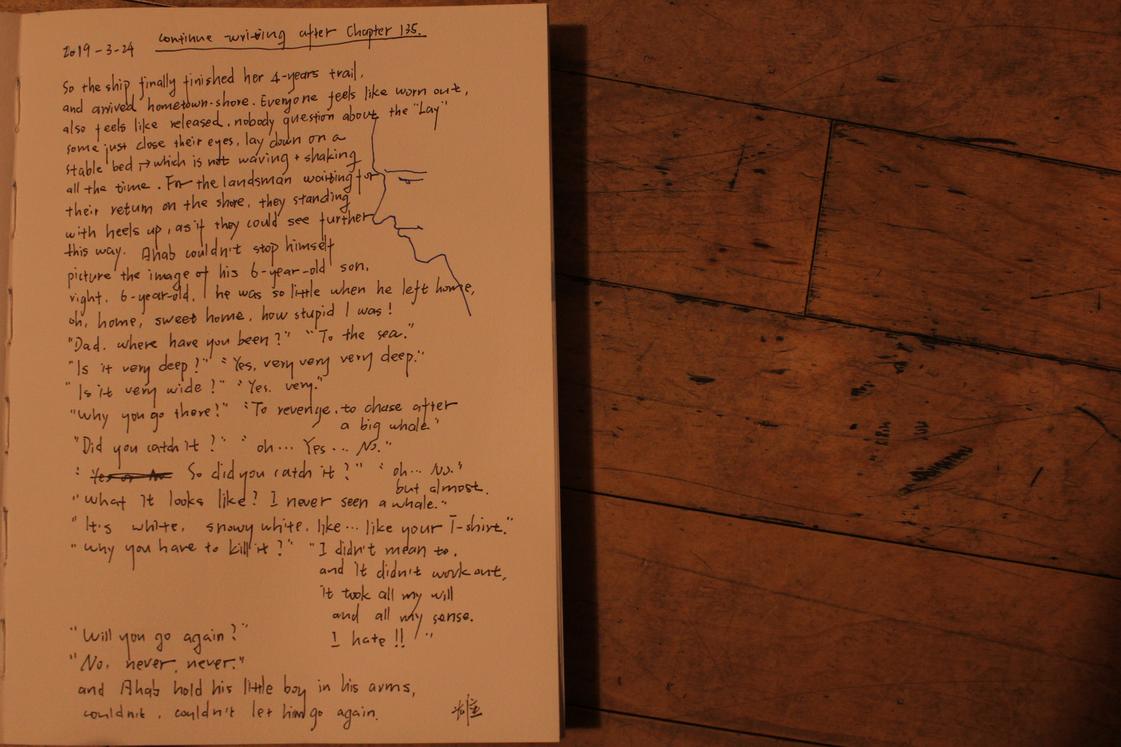 2019-3-24 continue writing after Chapter 135.
So the ship finally finished her 4-years trail,
and arrived hometown-shore. Everyone feels like worn out,
also feels like released, nobody question about the "Lay"
some just close their eyes, lay down on a
stable bed → which is not waving + shaking
all the time. For the landsman waiting for
their return on the shore, they standing
with heels up, as if they could see further
this way. Ahab couldn't stop himself
picture the image of his 6-year-old son,
right, 6-year-old, he was so little when he left home,
oh, home, sweet home, how stupid I was!
"Dad. where have you been?" "To the sea."
"Is it very deep?" "Yes, very very very deep."
"Is it very wide?" "Yes. very."
"Why you go there?" "To revenge, to chase after
a big whale."
"Did you catch it?" "oh... Yes... No."
" So did you catch it?" "oh... No."
but almost.
"what it looks like? I never seen a whale."
"It's white, snowy white, like... like your T-shirt."
"why you have to kill it?" "I didn't mean to,
and it didn't work out,
it took all my will
and all my sense.
I hate!!"
"Will you go again?"
"No, never, never."
and Ahab hold his little boy in his arms,
couldn't, couldn't let him go again.